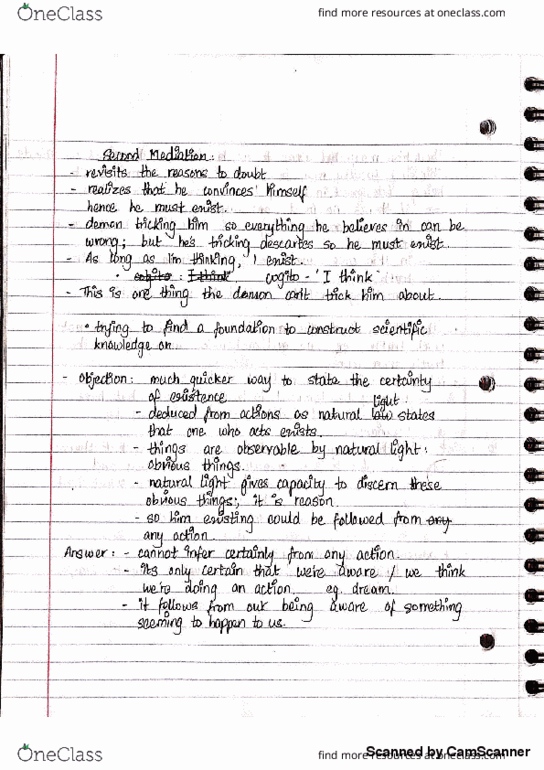 OneClass
find more resources at oneclass.com
Second Mediation:
- revisits the reasons to doubt
- realizes that he convinces himself
hence he must exist.
- demon tricking him so everything he believes in can be
wrong; but he's tricking descartes so he must exist.
- As long as I'm thinking, I exist.
• cogito : I think cogito - 'I think'
- This is one thing the demon can't trick him about.
• trying to find a foundation to construct scientific
knowledge on.
- Objection: much quicker way to state the certainty
of existence
light:
- deduced from actions as natural law states
that one who acts exists.
- things are observable by natural light:
obvious things.
- natural light gives capacity to discern these
obvious things; it is reason.
- so him existing could be followed from any
any action.
Answer: - cannot infer certainly from any action.
- its only certain that we're aware / we think
we're doing an action. eg. dream.
- it follows from our being aware of something
seeming to happen to us.
OneClass
find more resources at oneclass.com
Scanned by CamScanner